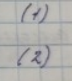 (1)
(2)